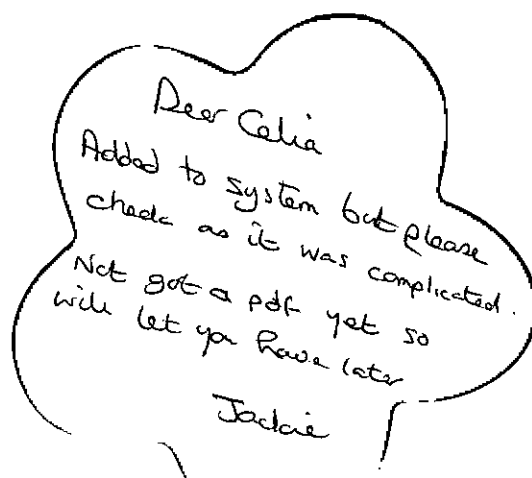 Dear Celia
Added to system but please
check as it was complicated.
Not got a pdf yet so
will let you have later
Jackie